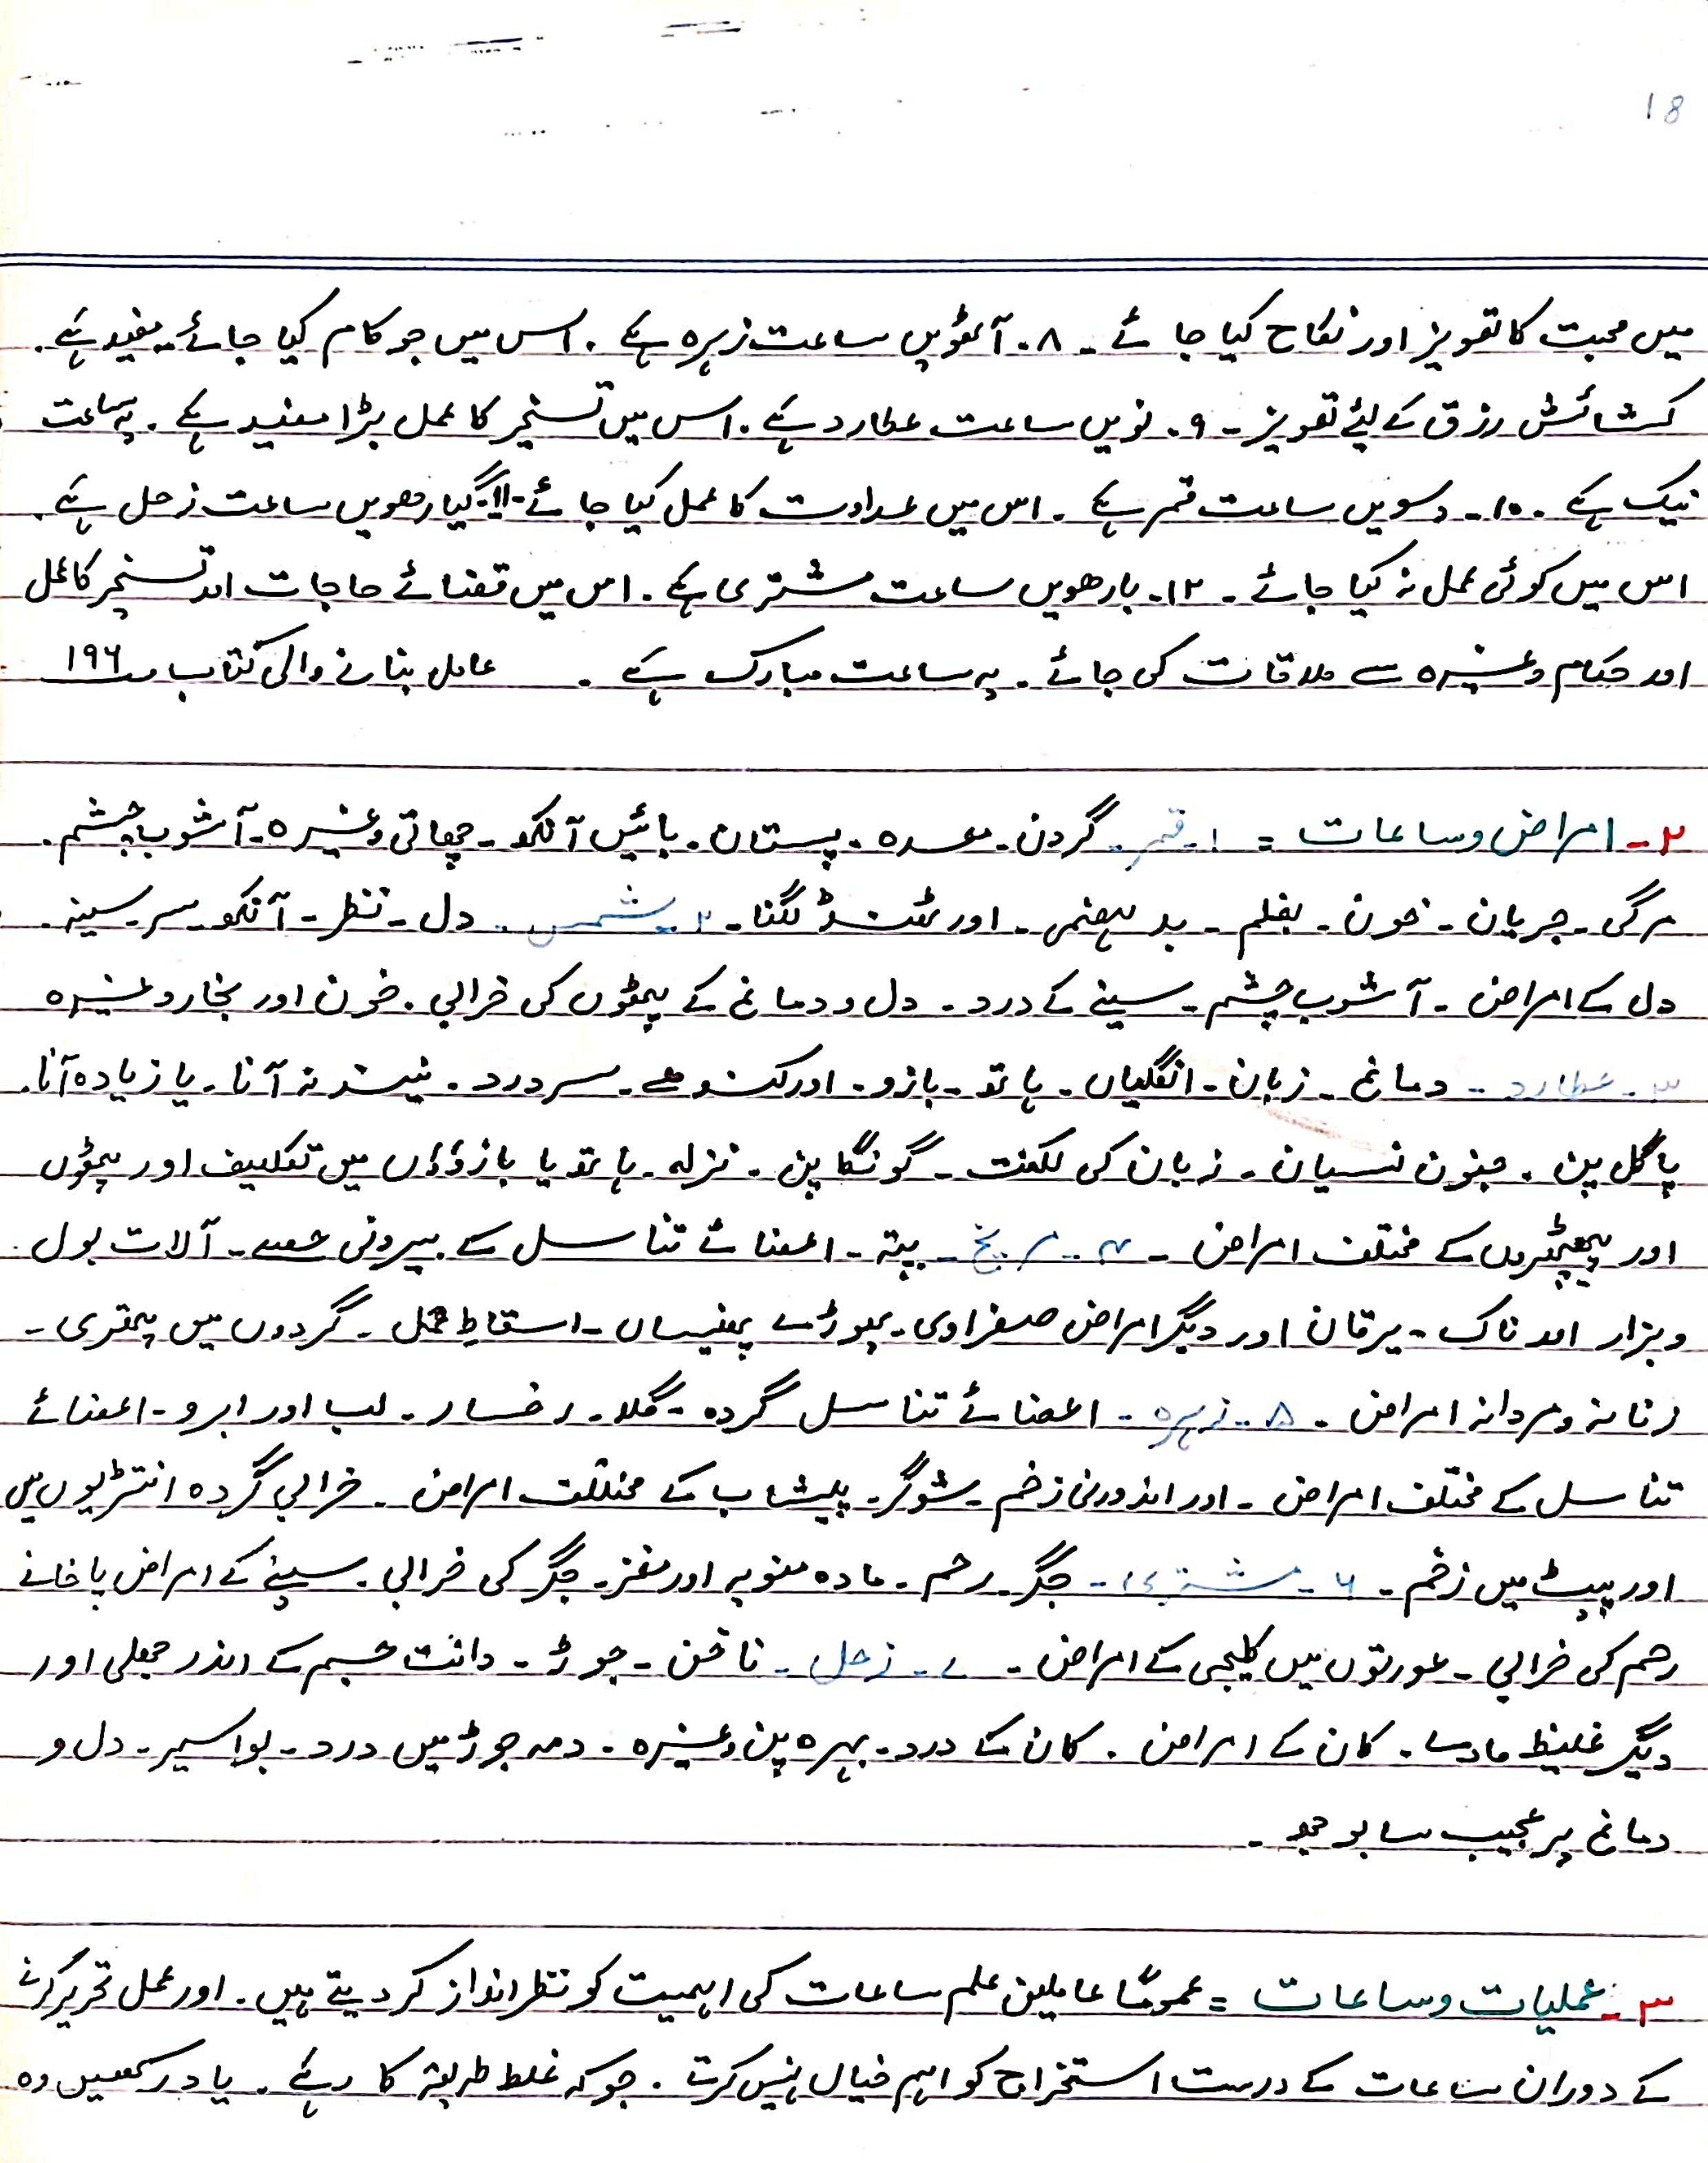 18
میں محبت کا تعویز اور نکاح کیا جائے ۔ ۸۔ آٹھویں ساعت زہرہ ہے ۔ اس میں جو کام کیا جائے ۔ مفید ہے ۔
کشائش رزق کے لیئے تعویز ۔ ۹۔ نویں ساعت عطارد ہے ۔ اس میں تسخیر کا عمل بڑا مفید ہے ۔ یہ ساعت
نیک ہے ۔ ۱۰۔ دسویں ساعت قمر ہے ۔ اس میں عداوت کا عمل کیا جائے ۔ 11۔ گیارھویں ساعت زحل ہے ۔
اس میں کوئی عمل نہ کیا جائے ۔ ۱۲۔ بارھویں ساعت مشتری ہے ۔ اس میں قضائے حاجات اور تسخیر کا عمل
اور حکام وغیرہ سے ملاقات کی جائے ۔ یہ ساعت مبارک ہے ۔ عامل بنانے والی کتاب صـ ۱۹۶
۲۔ امراض و ساعات = ۱۔ قمر۔ گردن ۔ معدہ ۔ پستان ۔ بائیں آنکھ ۔ چھاتی وغیرہ ۔ آشوب چشم ۔
مرگی ۔ جریان ۔ خون ۔ بلغم ۔ بد ہضمی ۔ اور ٹھنڈ لگنا ۔ ۲۔ شمس ۔ دل ۔ نظر ۔ آنکھ ۔ سر ۔ سینہ ۔
دل کے امراض ۔ آشوب چشم ۔ سینے کے درد ۔ دل و دماغ کے پٹھوں کی خرابی ۔ خون اور بخار وغیرہ
۳۔ عطارد ۔ دماغ ۔ زبان ۔ انگلیاں ۔ ہاتھ ۔ بازو ۔ اور کندھے ۔ سر درد ۔ نیند نہ آنا ۔ یا زیادہ آنا ۔
پاگل پن ۔ جنون نسیان ۔ زبان کی لکنت ۔ گونگا پن ۔ نزلہ ۔ ہاتھ یا بازؤؤں میں تکلیف اور پٹھوں
اور پھیپھڑوں کے مختلف امراض ۔ ۴۔ مریخ ۔ پتہ ۔ اعضائے تناسل کے بیرونی حصے ۔ آلات بول
و بزار اور ناک ۔ یرقان اور دیگر امراض صفراوی ۔ پھوڑے پھنسیاں ۔ اسقاط حمل ۔ گردوں میں پتھری ۔
زنانہ و مردانہ امراض ۔ ۵۔ زہرہ ۔ اعضائے تناسل گردہ ۔ گلا ۔ رخسار ۔ لب اور ابرو ۔ اعضائے
تناسل کے مختلف امراض ۔ اور اندورنی زخم ۔ شوگر ۔ پیشاب کے مختلف امراض ۔ خرابی گردہ انتڑیوں میں
اور پیٹ میں زخم ۔ ۶۔ مشتری ۔ جگر ۔ رحم ۔ مادہ منویہ اور مغز ۔ جگر کی خرابی ۔ سینے کے امراض پاخانے
رحم کی خرابی ۔ عورتوں میں کلیجی کے امراض ۔ ۷۔ زحل ۔ ناخن ۔ جوڑ ۔ دانت جسم کے اندر جھلی اور
دیگر غلیظ مادے ۔ کان کے امراض ۔ کان کے درد ۔ بہرہ پن وغیرہ ۔ دمہ جوڑ میں درد ۔ بواسیر ۔ دل و
دماغ پر عجیب سا بوجھ ۔
۳۔ عملیات و ساعات = عموماً عاملین علم ساعات کی اہمیت کو نظر انداز کر دیتے ہیں ۔ اور عمل تحریر کرنے
کے دوران ساعات کے درست استخراج کو اہم خیال نہیں کرتے ۔ جو کہ غلط طریقہ کار ہے ۔ یاد رکھیں وہ